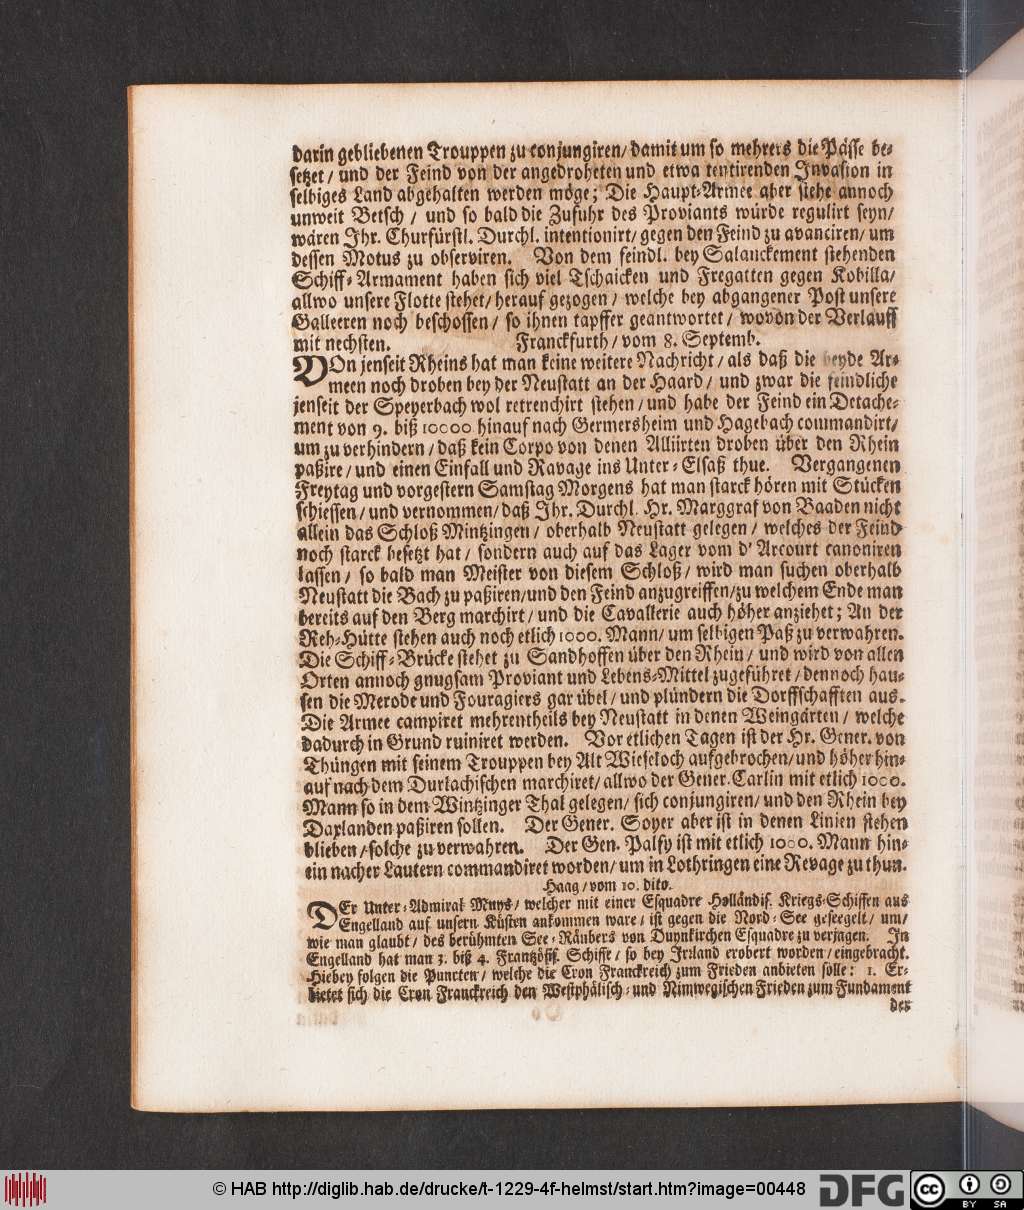 darin gebliebenen Trouppen zu conjungiren/ damit um so mehrers die Pässe be-
setzet/ und der Feind von der angedroheten und etwa tentirenden Invasion in
selbiges Land abgehalten werden möge; Die Haupt-Armee aber stehe annoch
unweit Betsch/ und so bald die Zufuhr des Proviants würde regulirt seyn/
wären Ihr. Churfürstl. Durchl. intentionirt/ gegen den Feind zu avanciren/ um
dessen Motus zu observiren. Von dem feindl. bey Salanckement stehenden
Schiff-Armament haben sich viel Tschaicken und Fregatten gegen Kobilla/
allwo unsere Flotte stehet/ herauf gezogen/ welche bey abgangener Post unsere
Galleeren noch beschossen/ so ihnen tapffer geantwortet/ wovon der Verlauff
mit nechsten. Franckfurth/ vom 8. Septemb.
VOn jenseit Rheins hat man keine weitere Nachricht/ als daß die beyde Ar-
meen noch droben bey der Neustatt an der Haard/ und zwar die feindliche
jenseit der Speyerbach wol retrenchirt stehen/ und habe der Feind ein Detache-
ment von 9. biß 10000 hinauf nach Germersheim und Hagebach commandirt/
um zu verhindern/ daß kein Corpo von denen Alliirten droben über den Rhein
paßire/ und einen Einfall und Ravage ins Unter-Elsaß thue. Vergangenen
Freytag und vorgestern Samstag Morgens hat man starck hören mit Stücken
schiessen/ und vernommen/ daß Ihr. Durchl. Hr. Marggraf von Baaden nicht
allein das Schloß Mintzingen/ oberhalb Neustatt gelegen/ welches der Feind
noch starck besetzt hat/ sondern auch auf das Lager vom d' Arcourt canoniren
lassen/ so bald man Meister von diesem Schloß/ wird man suchen oberhalb
Neustatt die Bach zu paßiren/ und den Feind anzugreiffen/ zu welchem Ende man
bereits auf den Berg marchirt/ und die Cavallerie auch höher anziehet; An der
Reh-Hütte stehen auch noch etlich 1000. Mann/ um selbigen Paß zu verwahren.
Die Schiff-Brücke stehet zu Sandhoffen über den Rhein/ und wird von allen
Orten annoch gnugsam Proviant und Lebens-Mittel zugeführet/ dennoch hau-
sen die Merode und Fouragiers gar übel/ und plündern die Dorffschafften aus.
Die Armee campiret mehrentheils bey Neustatt in denen Weingärten/ welche
dadurch in Grund ruiniret werden. Vor etlichen Tagen ist der Hr. Gener. von
Thüngen mit seinem Trouppen bey Alt Wiseloch aufgebrochen/ und höher hin-
auf nach dem Durlachischen marchiret/ allwo der Gener. Carlin mit etlich 1000.
Mann so in dem Wintzinger Thal gelegen/ sich conjungiren/ und den Rhein bey
Daxlanden paßiren sollen. Der Gener. Soyer aber ist in denen Linien stehen
blieben/ solche zu verwahren. Der Gen. Palfy ist mit etlich 1000. Mann hin-
ein nacher Lautern commandiret worden/ um in Lothringen eine Revage zu thun.
Haag/ vom 10. dito.
DEr Unter-Admiral Muys/ welcher mit einer Esquadre Holländis. Kriegs-Schiffen aus
Engelland auf unsern Küsten ankommen ware/ ist gegen die Nord-See geseegelt/ um/
wie man glaubt/ des berühmten See-Räubers von Duynkirchen Esquadre zu verjagen. In
Engelland hat man 3. biß 4. Frantzösis. Schiffe/ so bey Irrland erobert worden/ eingebracht.
Hiebey folgen die Puncten/ welche die Cron Franckreich zum Frieden anbieten solle: 1. Er-
bietet sich die Cron Franckreich den Westphälisch- und Nimwegischen Frieden zum Fundament
der
© HAB http://diglib.hab.de/drucke/t-1229-4f-helmst/start.htm?image=00448
DFG
cc BY SA